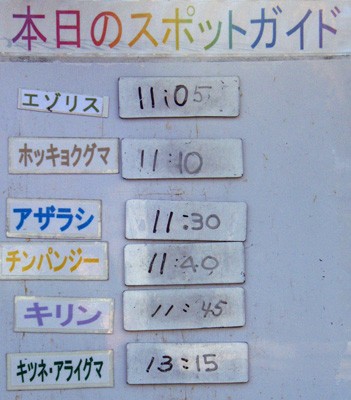 本日のスポットガイド
エゾリス 11:05
ホッキョクグマ 11:10
アザラシ 11:30
チンパンジー 11:40
キリン 11:45
キツネ・アライグマ 13:15